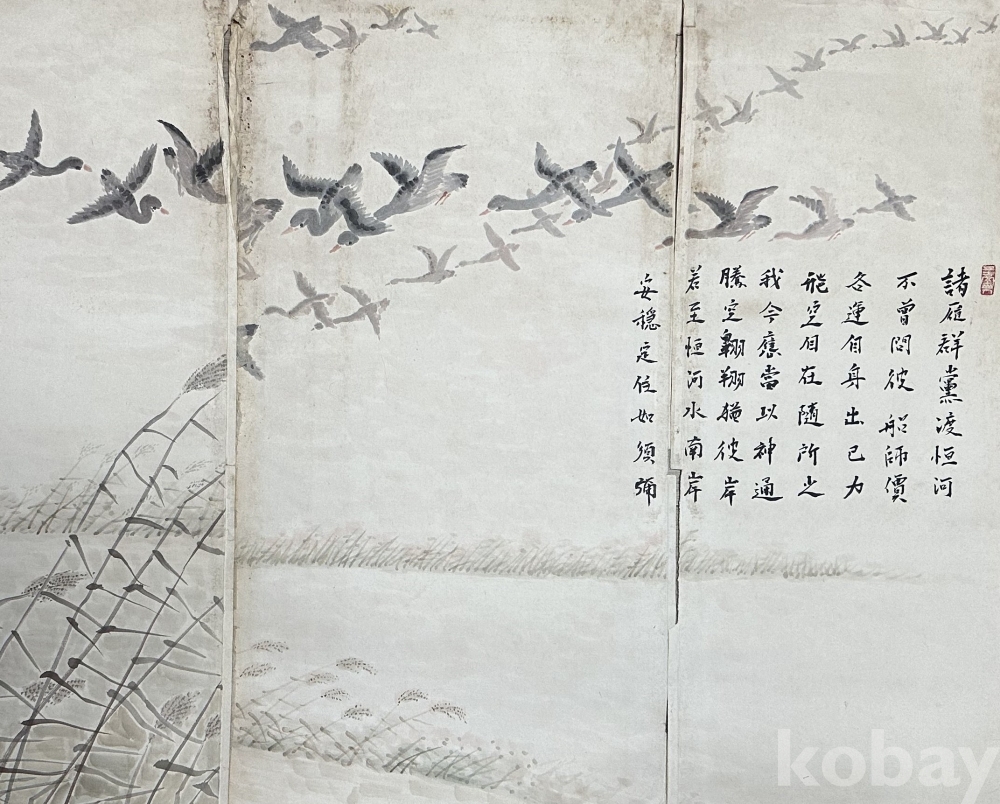 諸雁群黨渡恒河
不曾問彼船師價
各運自身出己力
飛空自在隨所之
我今應當以神通
騰空翱翔猶彼岸
若至恒河水南岸
安穩定住如須彌
kobay